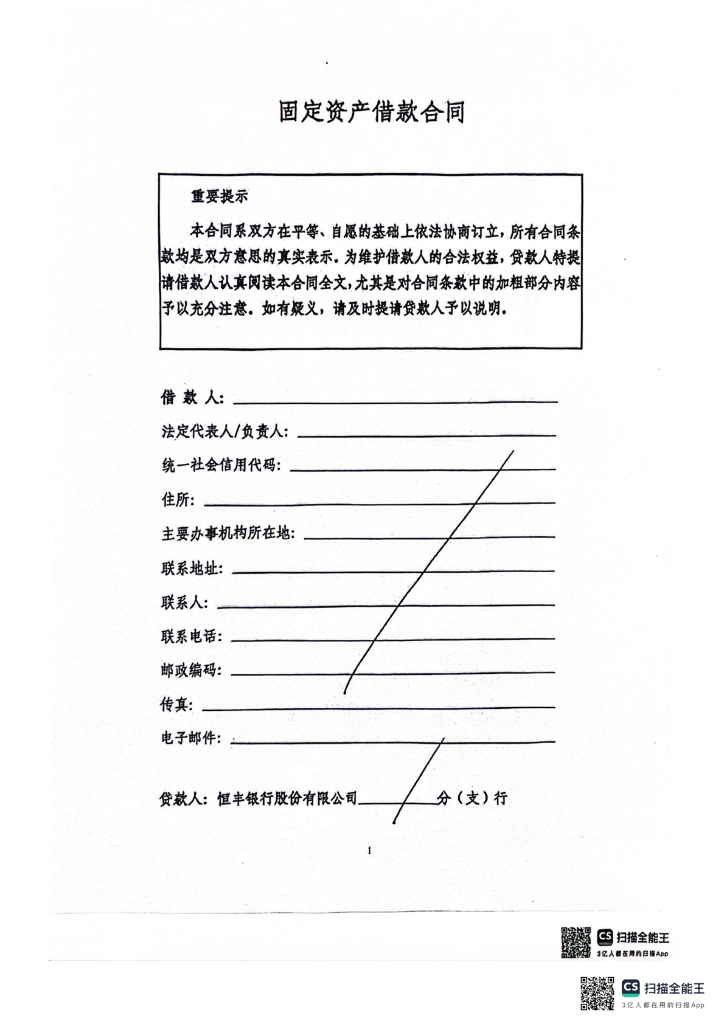 固定资产借款合同
重要提示
本合同系双方在平等、自愿的基础上依法协商订立，所有合同条
款均是双方意愿的真实表示。为维护借款人的合法权益，贷款人特提
请借款人认真阅读本合同全文，尤其是对合同条款中的加粗部分内容
予以充分注意。如有疑义，请及时提请贷款人予以说明。
借 款 人：
法定代表人/负责人：
统一社会信用代码：
住所：
主要办事机构所在地：
联系地址：
联系人：
联系电话：
邮政编码：
传真：
电子邮件：
贷款人：恒丰银行股份有限公司______分（支）行
1
CS 扫描全能王
3亿人都在用的扫描App
CS 扫描全能王
3亿人都在用的扫描App